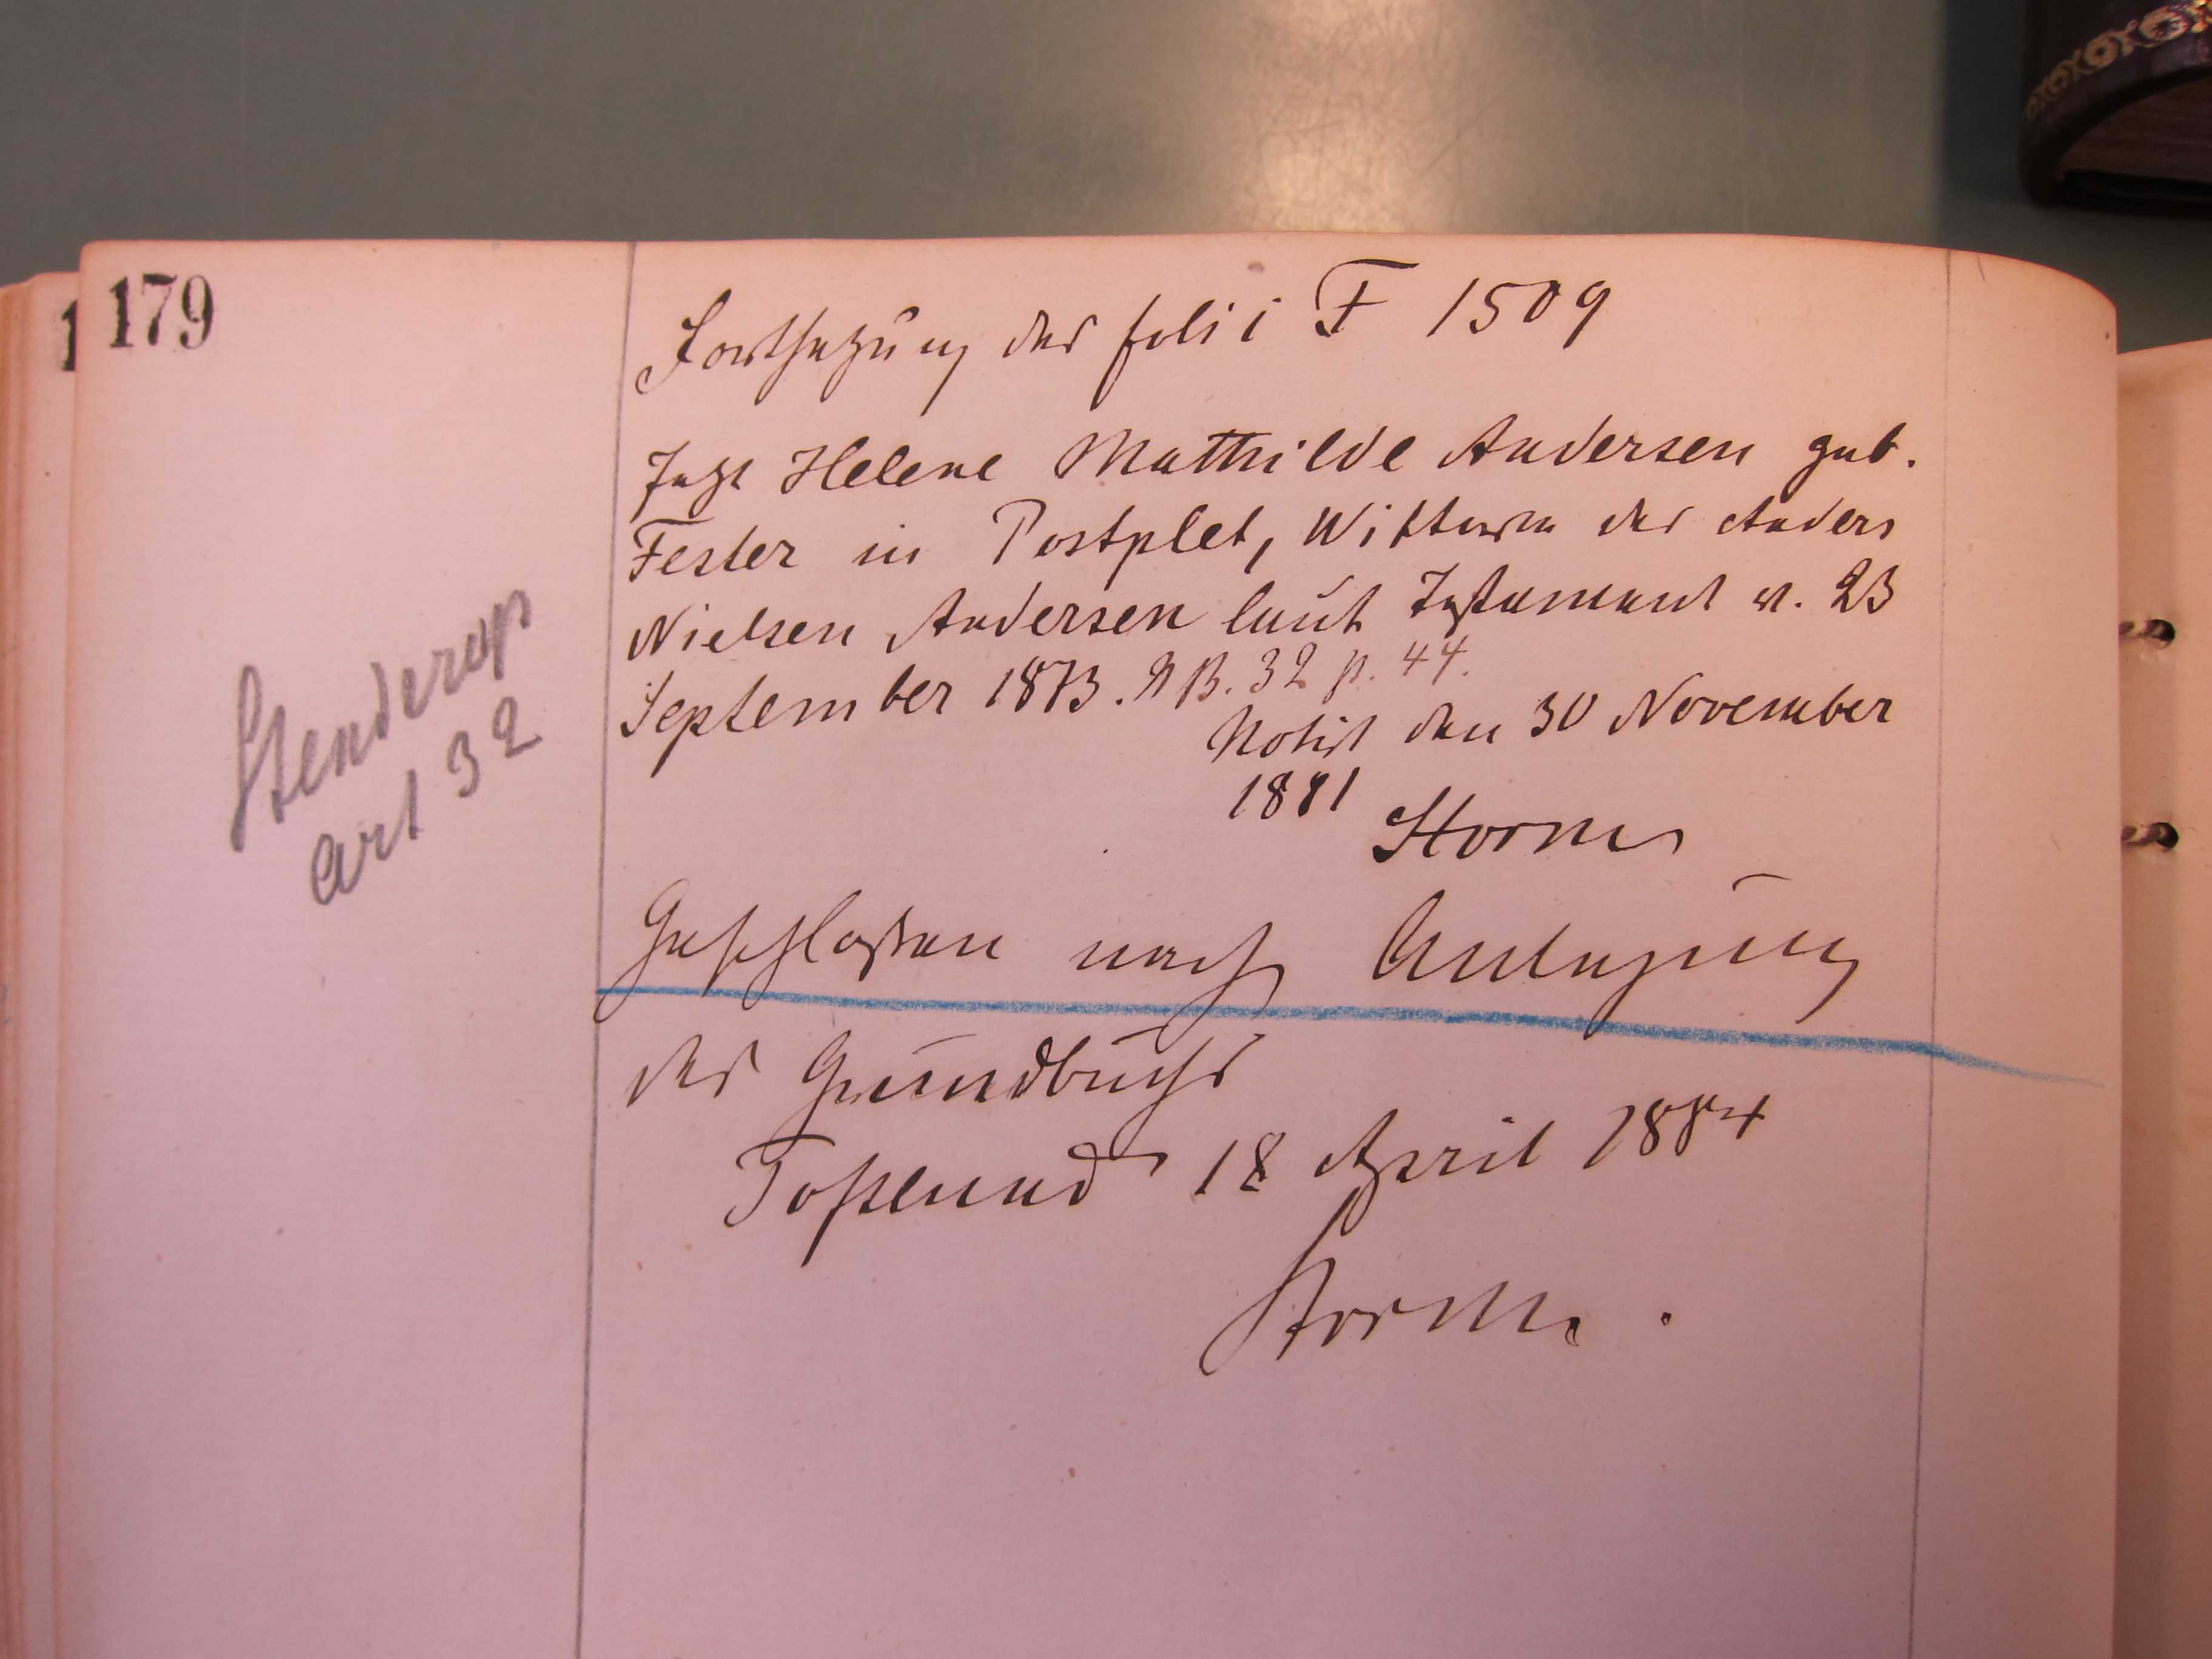 179
Fortsetzung des folii F 1509
Jetzt Helene Mathilde Andersen geb.
Fester in Postplet, Wittwe des Anders
Nielsen Andersen laut Testament v. 23
September 1873. NB. 32 p. 44.
Notirt den 30 November
1881
Storm
Stenderup
Art 32
Geschlossen nach Anlegung
des Grundbuchs
Toftlund 18 April 1884
Storm.